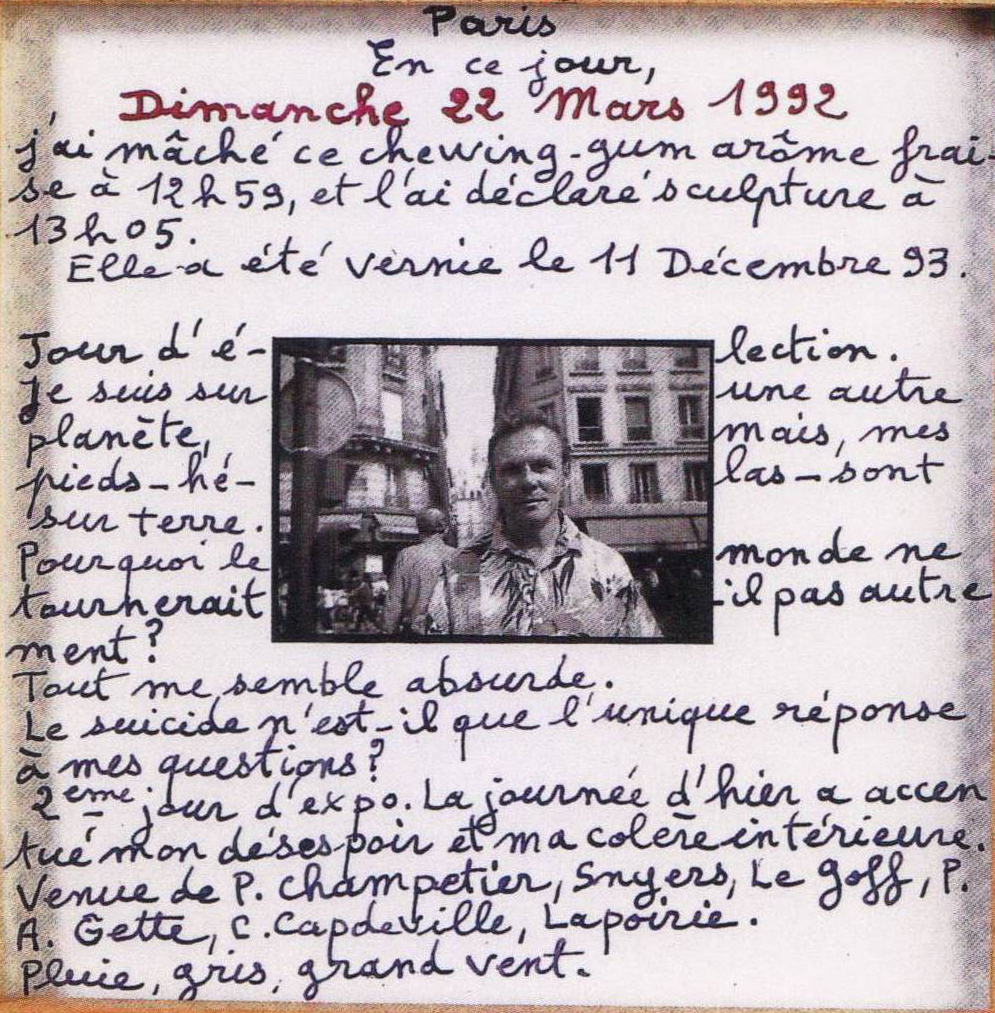 Paris
En ce jour,
Dimanche 22 Mars 1992
j'ai mâché ce chewing-gum arôme frai-
se à 12h59, et l'ai déclaré sculpture à
13h05.
Elle a été vernie le 11 Décembre 93.
Jour d'é-lection.
Je suis sur une autre
planète, mais, mes
pieds-hé-las-sont
sur terre.
Pourquoi le monde ne
tournerait-il pas autre
ment?
Tout me semble absurde.
Le suicide n'est-il que l'unique réponse
à mes questions?
2ème jour d'expo. La journée d'hier a accen
tué mon désespoir et ma colère intérieure.
Venue de P. Champetier, Snyers, Le Goff, P.
A. Gette, C. Capdeville, Lapoirie.
Pluie, gris, grand vent.